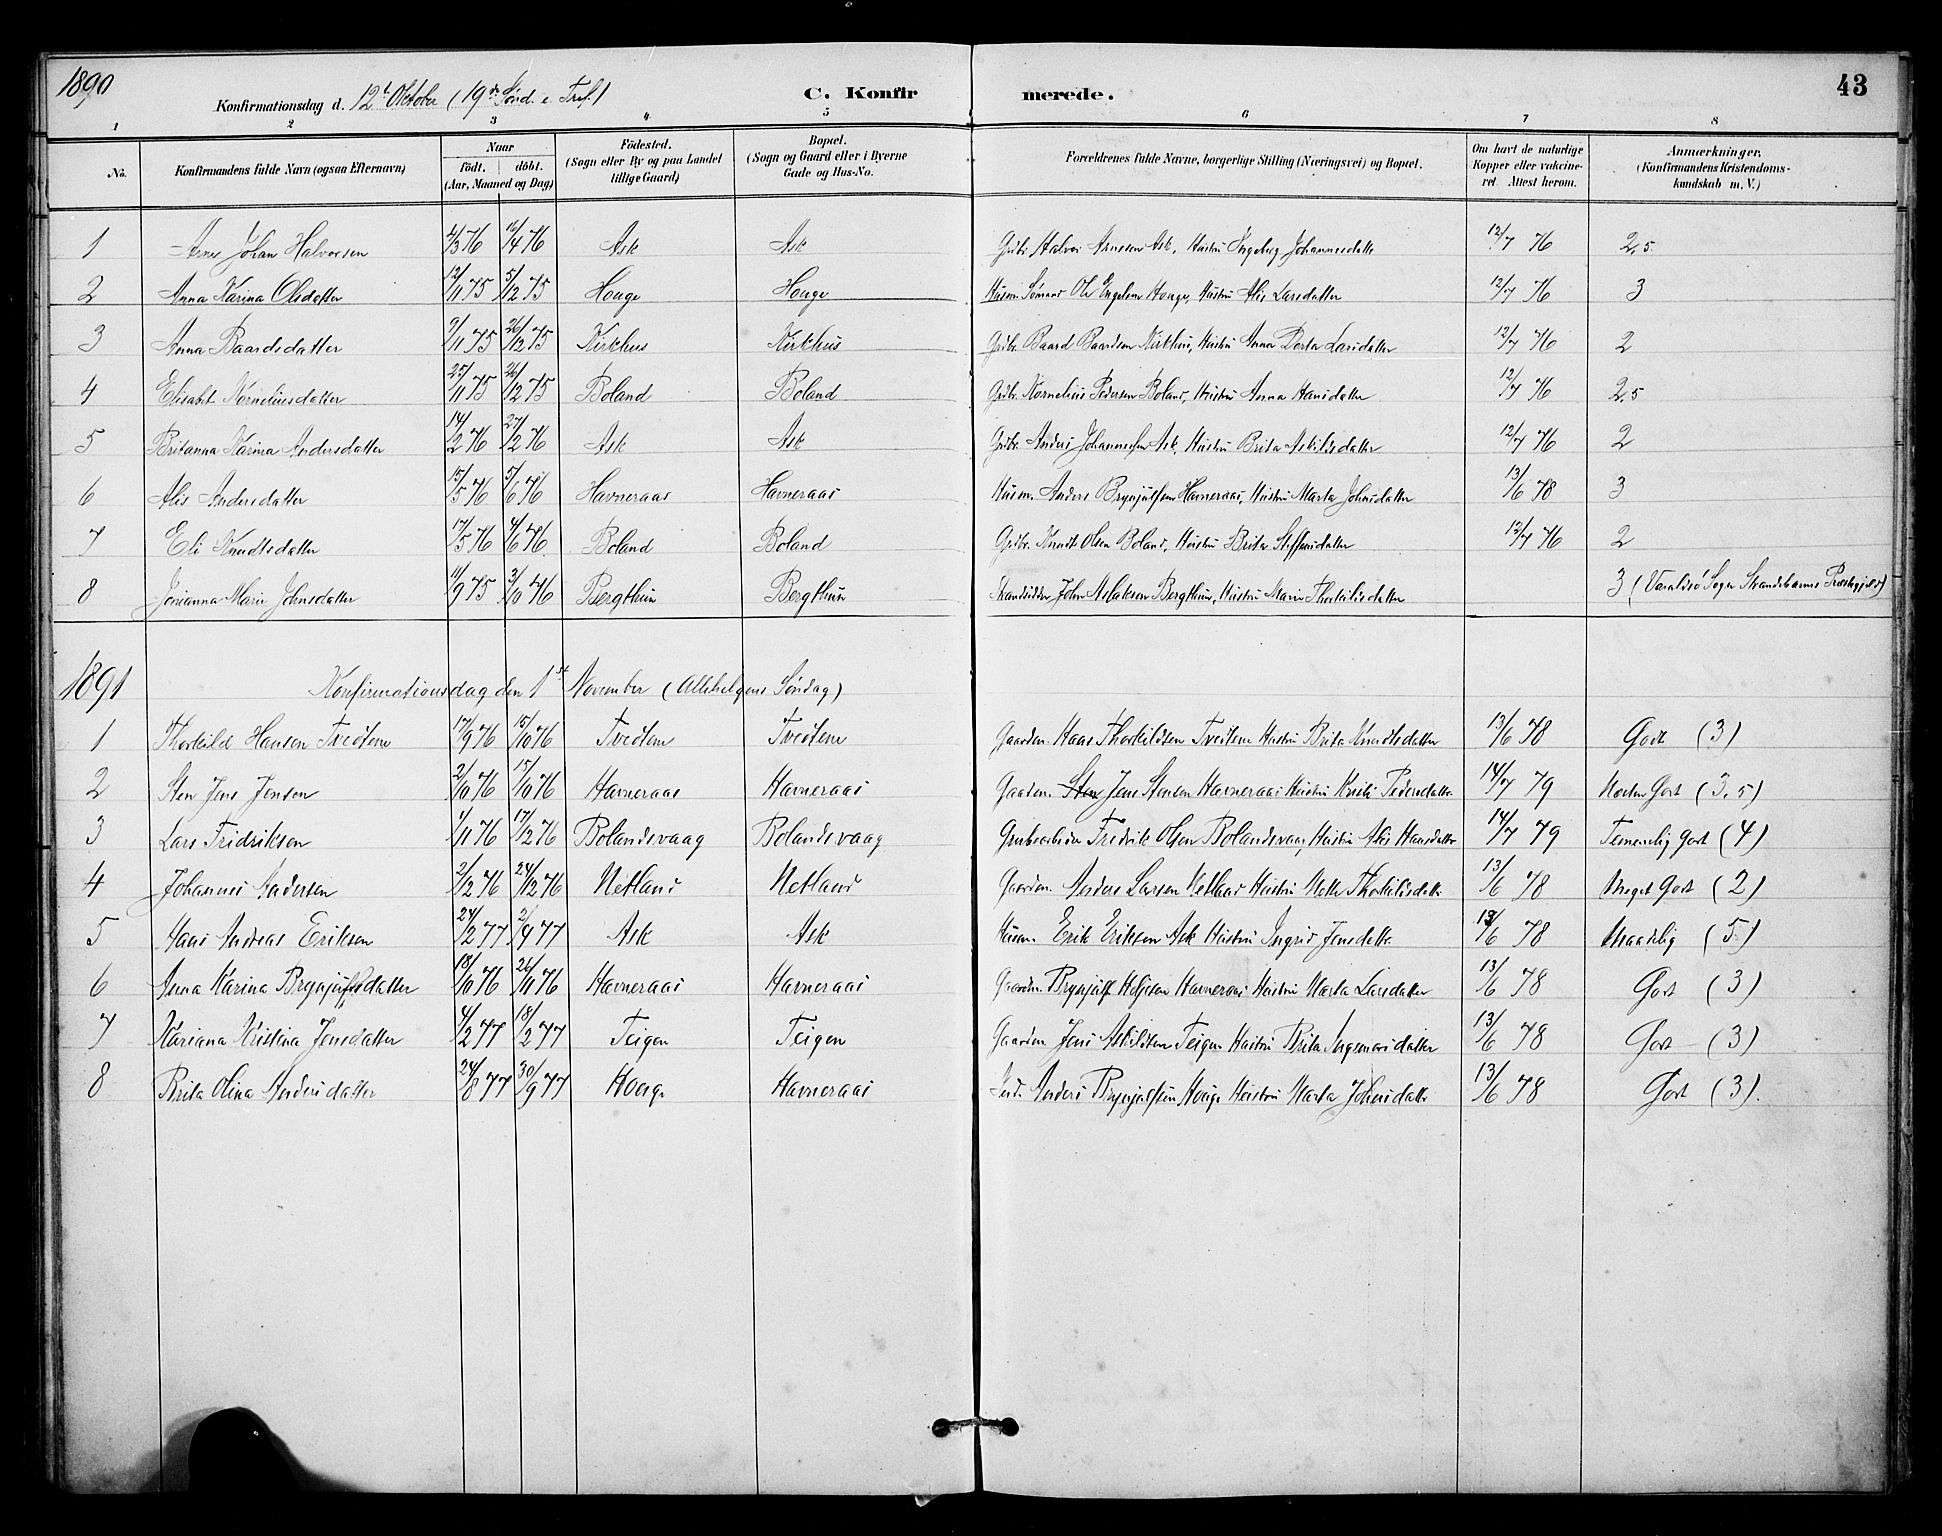 1890
Konfirmationsdag d. 12t Oktober (19de Sönd. e. Tref.)
C. Konfirmerede.
43
1 2 3 4 5 6 7 8
No.
Konfirmandens fulde Navn (ogsaa Efternavn)
Naar
födt. döbt.
(Aar, Maaned og Dag)
Födested.
(Sogn eller By og paa Landet
tillige Gaard)
Bopæl.
(Sogn og Gaard eller i Byerne
Gade og Hus-No.
Forældrenes fulde Navne, borgerlige Stilling (Næringsvei) og Bopæl.
Om havt de naturlige
Kopper eller vakcine-
ret. Attest herom.
Anmærkninger.
(Konfirmandens Kristendoms-
kundskab m. V.)
1 Arne Johan Halvorsen 4/3 76 16/4 76 Ask Ask Grdbr. Halvor Arnesen Ask, Hustru Ingeborg Johannesdatter 12/7 76 2,5
2 Anna Karina Olsdatter 12/11 75 5/12 75 Houge Houge Husm. Sömand Ole Engelsen Houge, Hustru Alis Larsdatter 12/7 76 3
3 Anna Baardsdatter 9/11 75 26/12 75 Kirkhus Kirkhus Grdbr. Baard Baardsen Kirkhus, Hustru Anna Dorta Larsdatter 12/7 76 2
4 Elisabet Korneliusdatter 25/11 75 26/12 75 Boland Boland Grdbr. Kornelius Pedersen Boland, Hustru Anna Hansdatter 12/7 76 2,5
5 Britanna Karina Andersdatter 14/2 76 27/2 76 Ask Ask Grdbr. Anders Johannessen Ask, Hustru Brita Askildsdatter 12/7 76 2
6 Alis Andersdatter 15/5 76 5/6 76 Havneraas Havneraas Husm. Anders Brynjulfsen Havneraas, Hustru Marta Johnsdatter 13/6 78 3
7 Eli Knudtsdatter 17/5 76 4/6 76 Boland Boland Grdbr. Knudt Olsen Boland, Hustru Brita Steffensdatter 12/7 76 2
8 Marie Johnsdatter 11/9 75 3/10 76 Bergthun Bergthun Strandsidder John Aslaksen Bergthun, Hustru Marie Thorkildsdatter 3 (Varaldsö Sogn Strandebarms Præstegjeld)
1891 Konfirmationsdag den 1ste November (Allehelgens Söndag)
1 Thorkild Hansen Tvedtene 17/9 76 15/10 76 Tvedtene Tvedtene Gaardm. Hans Thorkildsen Tveitene Hustru Brita Knudtsdatter 13/6 78 Godt (3)
2 Sten Jens Jensen 2/10 76 15/10 76 Havneraas Havneraas Gaardm. Sten Jens Stensen Havneraas Hustru Kristi Pedersdatter 14/7 79 Næsten Godt (3,5)
3 Lars Fridriksen 1/11 76 17/12 76 Bolandsvaag Bolandsvaag Grubearbeider Fredrik Olsen Bolandsvaag, Hustru Alis Hansdatter 14/7 79 Temmelig godt (4)
4 Johannes Andersen 2/12 76 24/12 76 Netland Netland Gaardm. Anders Larsen Netland Hustru Thorkildsdatter 13/6 78 Meget Godt (2)
5 Hans Andreas Eriksen 24/2 77 2/4 77 Ask Ask Husm. Erik Eriksen Ask Hustru Ingrid Jensdatter 13/6 78 Maadelig (5)
6 Anna Karina Brynjulfsdatter 18/10 76 26/11 76 Havneraas Havneraas Gaardm. Brynjulf Helgesen Havneraas Hustru Marta Larsdatter 13/6 78 Godt (3)
7 Mariana Kristina Jensdatter 4/2 77 18/2 77 Teigen Teigen Gaardm. Jens Askildsen Teigen Hustru Brita Ingemarsdatter 13/6 78 Godt (3)
8 Brita Olina Andersdatter 24/8 77 30/9 77 Houge Havneraas Anders Brynjulfsen Houge Hustru Marta Johnsdatter 13/6 78 Godt (3).